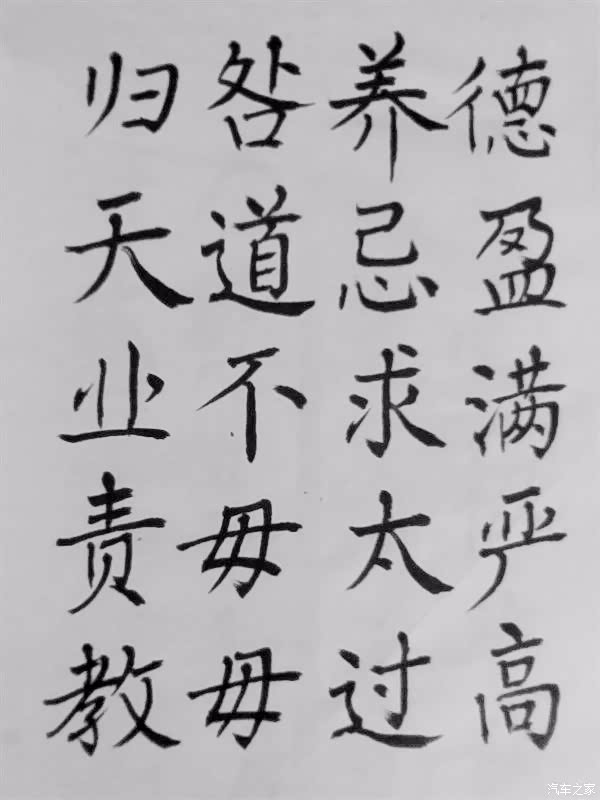 归咎养德
天道忌盈
业不求满
责毋太严
教毋过高
汽车之家